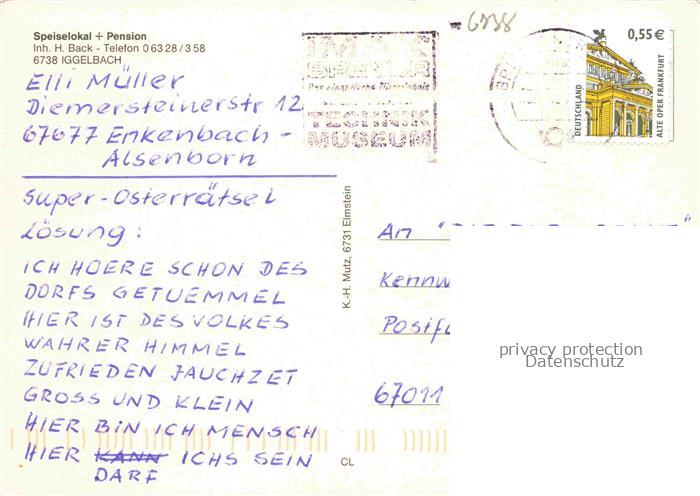 Speiselokal + Pension
Inh. H. Back - Telefon 0 63 28 / 3 58
6738 IGGELBACH
Elli Müller
Diemersteinerstr 12
67677 Enkenbach -
Alsenborn
Super-Osterrätsel
Lösung:
ICH HOERE SCHON DES
DORFS GETUEMMEL
HIER IST DES VOLKES
WAHRER HIMMEL
ZUFRIEDEN JAUCHZET
GROSS UND KLEIN
HIER BIN ICH MENSCH
HIER KANN ICHS SEIN
DARF
K.-H. Mutz, 6731 Elmstein
CL
6738
IMAX
SPEYER
TECHNIK
MUSEUM
0,55 €
DEUTSCHLAND
ALTE OPER FRANKFURT
An
Kennw
Postf
67011
privacy protection
Datenschutz